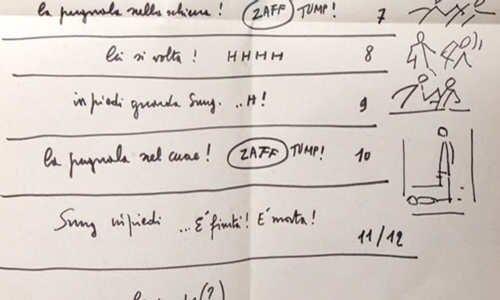 la pugnala nella schiena! ZAFF TUMP! 7
lei si volta! HHHH 8
in piedi guarda Sung. ..H! 9
la pugnala nel cuore! ZAFF TUMP! 10
Sung in piedi ...E' finita! E' morta! 11/12
(?)